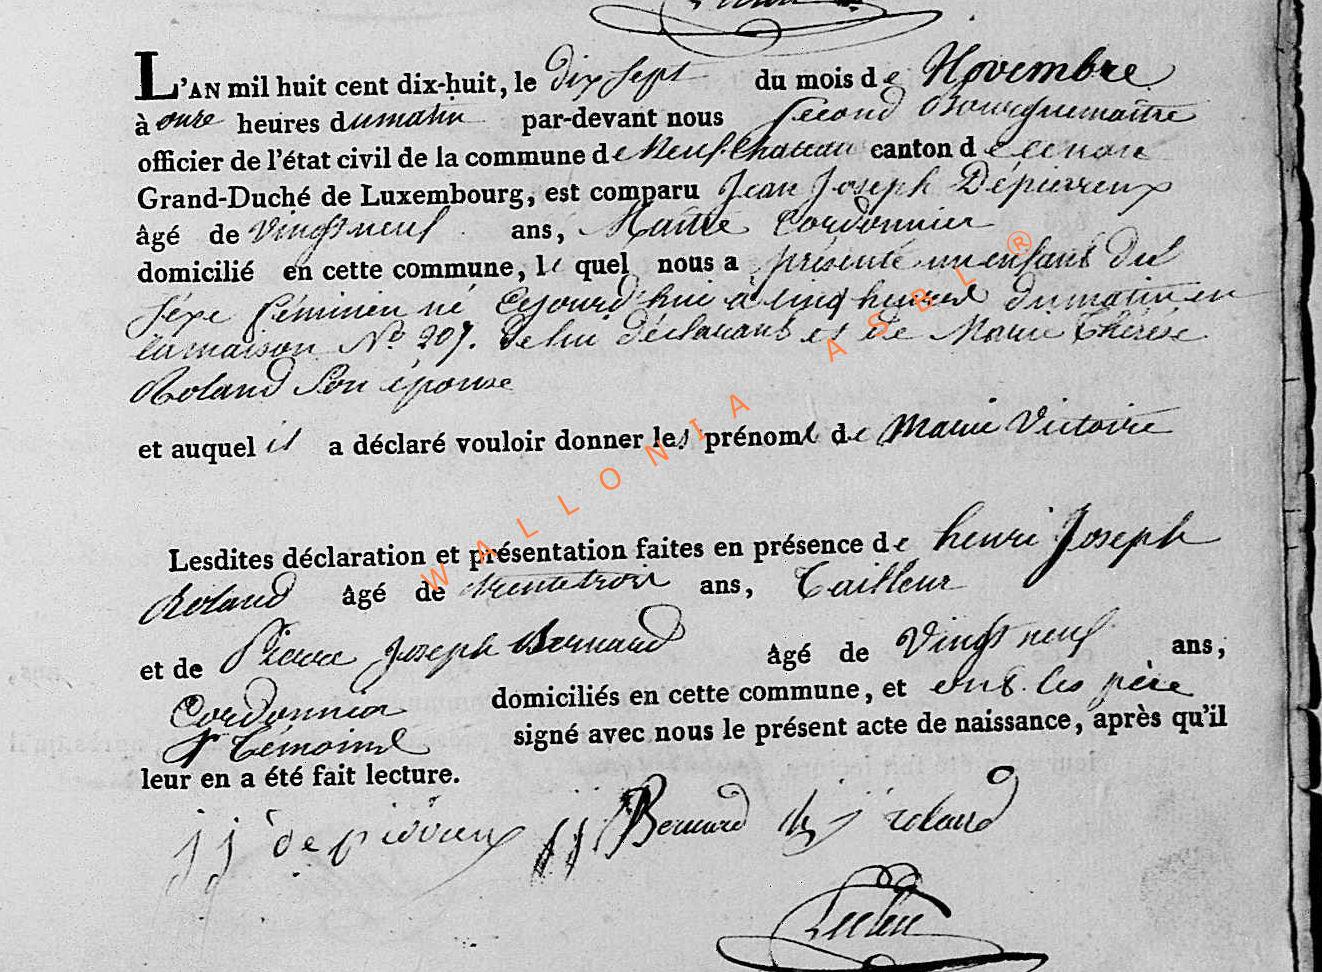 L'AN mil huit cent dix-huit, le dix Sept du mois de Novembre
à onze heures dumatin par-devant nous Second Bourguemaitre
officier de l'état civil de la commune de Neufchateau canton d
Grand-Duché de Luxembourg, est comparu Jean Joseph Dépierreux
âgé de Vingt neuf ans, Maitre Cordonnier
domicilié en cette commune, le quel nous a présenté un enfant du
Séxe féminin né Cejourd'hui a Cinq heures du matin en
la maison N° 207. De lui déclarant et de Marie Thérèse
Roland Son épouse
et auquel il a déclaré vouloir donner les prénoms de Marie Victoire
Lesdites déclaration et présentation faites en présence de henri Joseph
Roland âgé de trente trois ans, Tailleur
et de Pierre Joseph Bernard âgé de Vingt neuf ans,
Cordonnier domiciliés en cette commune, et ont les père
& témoins signé avec nous le présent acte de naissance, après qu'il
leur en a été fait lecture.
jj depierreux Bernard h j roland
WALLONIA ASBL ®